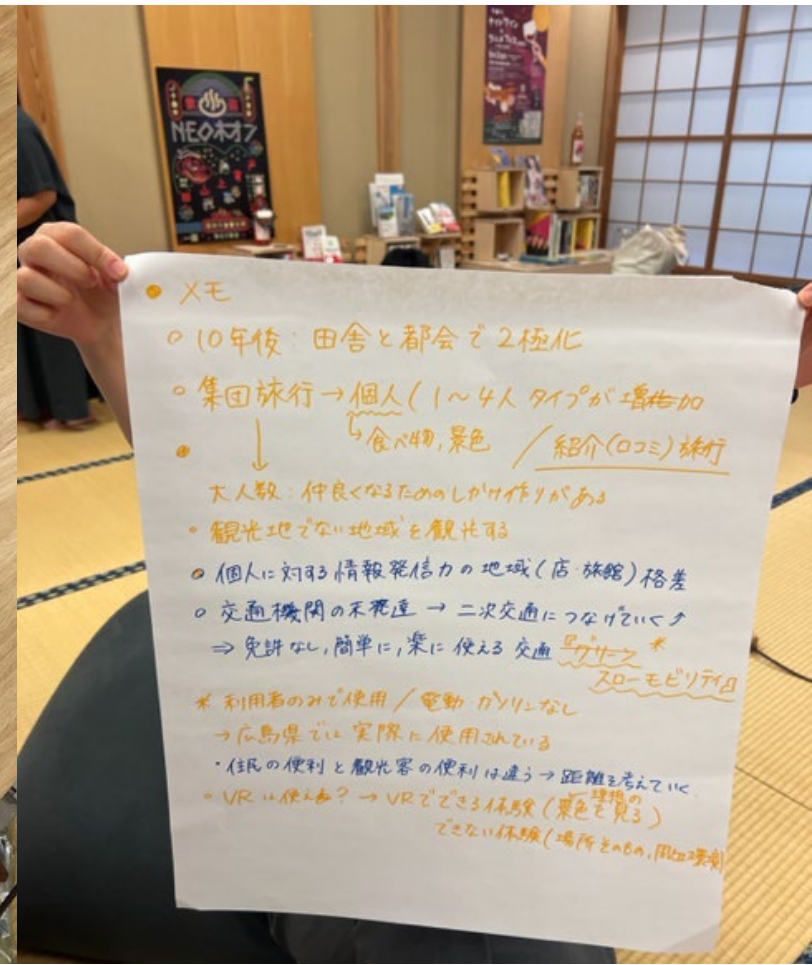 NEOネオン
● メモ
○ 10年後：田舎と都会で2極化
○ 集団旅行→個人(1～4人タイプが増加
↳食べ物,景色 / 紹介(口コミ)旅行
↓
大人数：仲良くなるためのしかけ作りがある
○ 観光地でない地域を観光する
○ 個人に対する情報発信力の地域(店・旅館)格差
○ 交通機関の未発達 → 二次交通につなげていく↗
⇒ 免許なし,簡単に,楽に使える交通『グリーン *
スローモビリティ』
* 利用者のみで使用 / 電動 ガソリンなし
→広島県では実際に使用されている
・住民の便利と観光客の便利は違う→距離を考えていく
○ VRは使える？→VRでできる体験(景色を見る)
理想の
できない体験(場所そのもの,周辺環境)